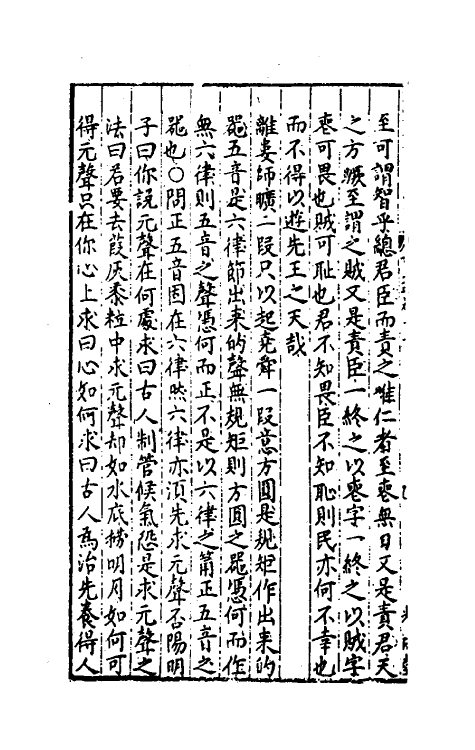 至可謂智乎總君臣而責之唯仁者至喪無日又是責君天
之方蹶至謂之賊又是責臣一終之以喪字一終之以賊字
喪可畏也賊可耻也君不知畏臣不知恥則民亦何不幸也
而不得以遊先王之天哉
離婁師曠二段只以起堯舜一段意方圓是規矩作出来的
器五音是六律節出来的聲無規矩則方圓之器憑何而作
無六律則五音之聲憑何而正不是以六律之箾正五音之
器也○問正五音固在六律然六律亦湏先求元聲否陽明
子曰你說元聲在何處求曰古人制管候氣恐是求元聲之
法曰若要去葭灰黍粒中求元聲却如水底撈明月如何可
得元聲只在你心上求曰心如何求曰古人為治先養得人